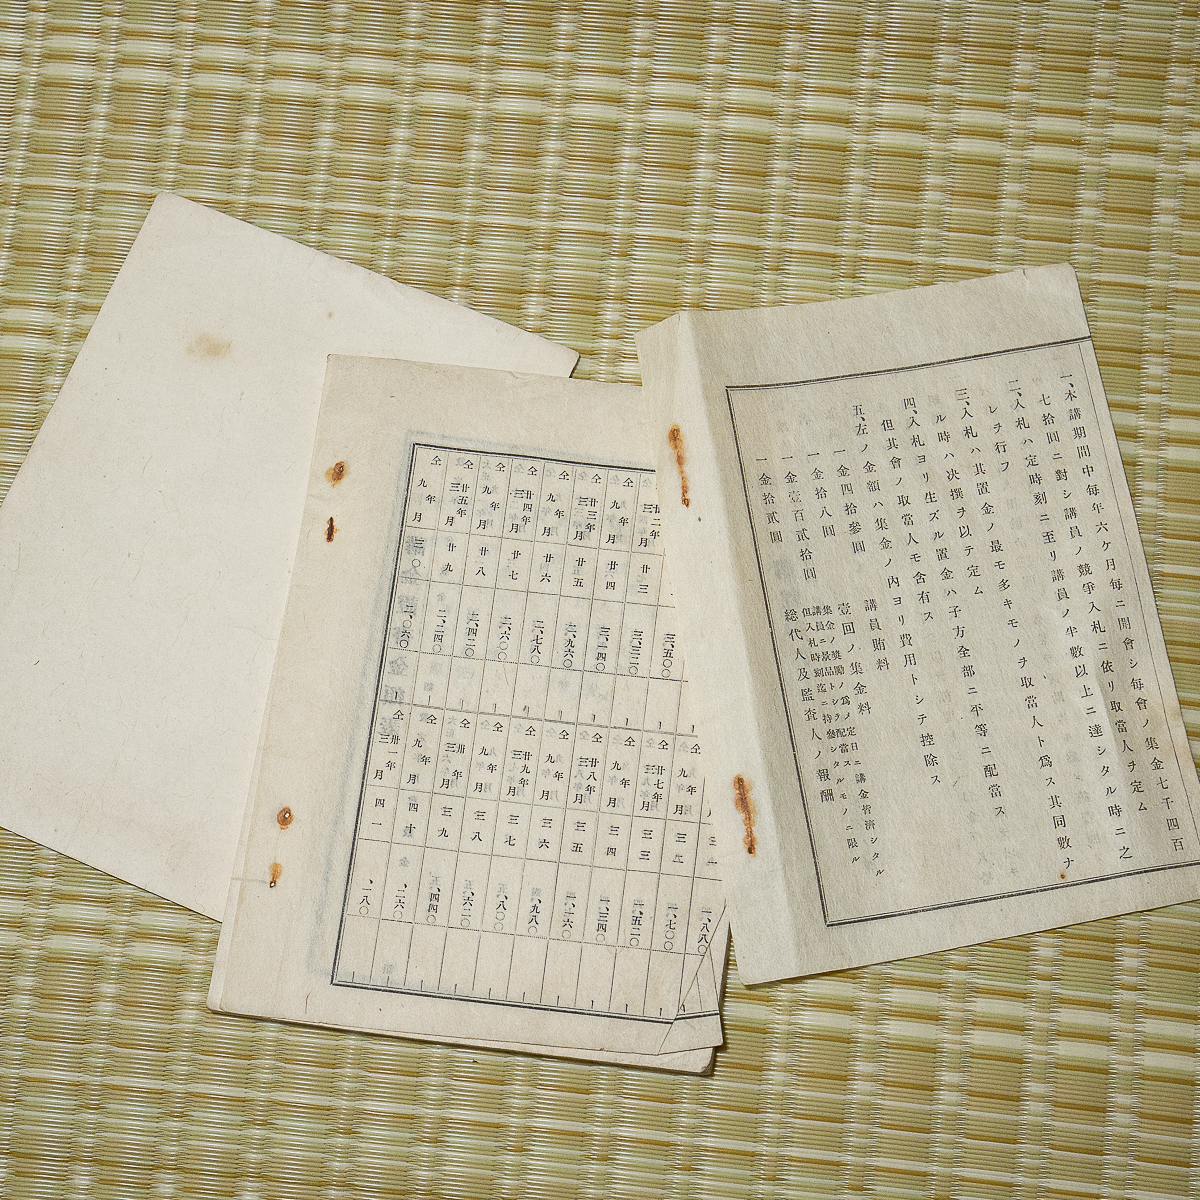 一、本講期間中毎年六ケ月毎ニ開會シ毎會ノ集金七千四百
七拾圓ニ對シ講員ノ競爭入札ニ依リ取當人ヲ定ム
二、入札ハ定時刻ニ至リ講員ノ半數以上ニ達シタル時ニ之
レヲ行フ
三、入札ハ其置金ノ最モ多キモノヲ取當人ト爲ス其同數ナ
ル時ハ次撰ヲ以テ定ム
四、入札ヨリ生ズル置金ハ子方全部ニ平等ニ配當ス
但其會ノ取當人モ含有ス
五、左ノ金額ハ集金ノ內ヨリ費用トシテ控除ス
一金四拾參圓 講員賄料
一金拾八圓 壹回ノ集金料
一金壹百貳拾圓 集金ノ奬勵ノ爲メ定日ニ講金皆濟シタル
講員ニ景品トシテ配當スルモノニ限ル
但入札時刻迄ニ持參シタル
一金拾貳圓 総代人及監査人ノ報酬
廿二年三月 廿三 三、五〇〇
仝 九年月 廿四 三、三二〇
仝 廿三年三月 廿五 三、一四〇
仝 九年月 廿六 二、九六〇
仝 廿四年三月 廿七 二、七八〇
仝 九年月 廿八 二、六〇〇
仝 廿五年三月 廿九 二、四二〇
仝 九年月 三〇 二、二四〇
二、〇六〇
一、八八〇
仝 九年月 三二 一、七〇〇
仝 廿七年三月 三三 一、五二〇
仝 九年月 三四 一、三四〇
仝 廿八年三月 三五 一、一六〇
仝 九年月 三六 、九八〇
仝 廿九年三月 三七 、八〇〇
仝 九年月 三八 、六二〇
仝 卅年三月 三九 、四四〇
仝 九年月 四十 、二六〇
仝 卅一年三月 四一 、一八〇